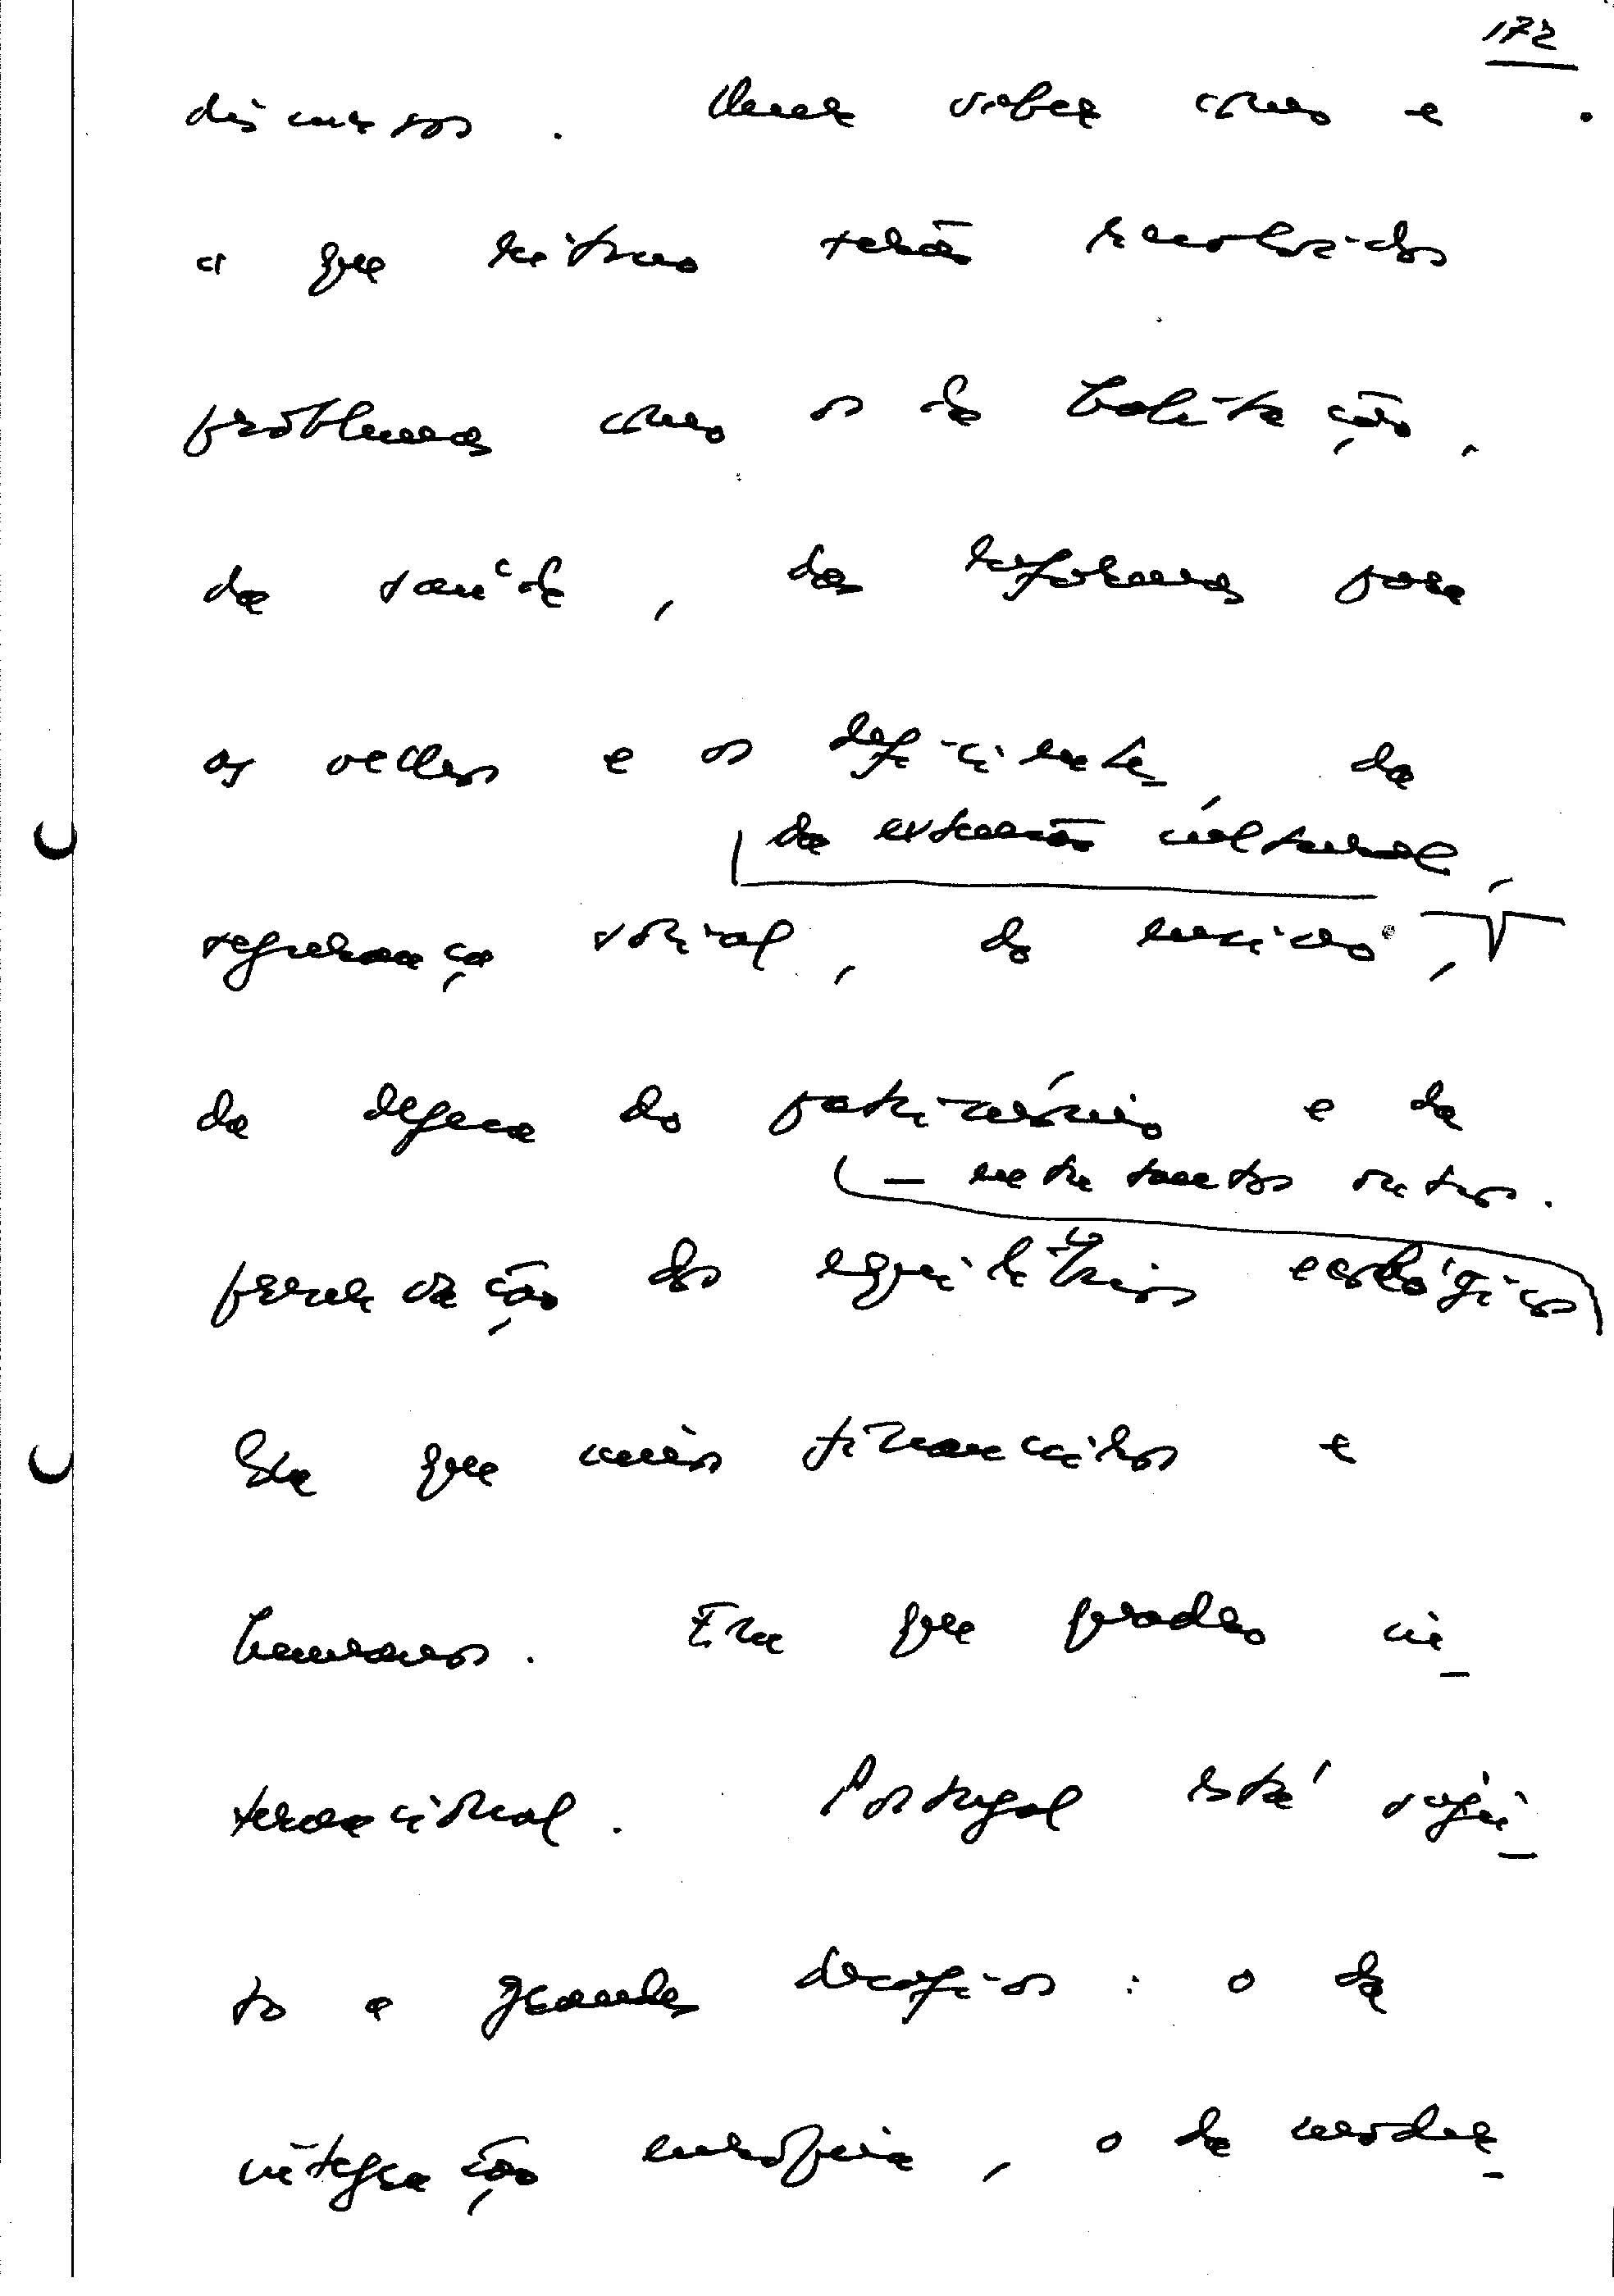 172
discursos. Quer saber como e
a que ritmo serão resolvidos
problemas como o da habitação,
da saúde, das reformas para
os velhos e os deficientes, da
da extensão cultural,
segurança social, do ensino,
da defesa do património e da
– entre tantos outros.
preservação do equilíbrio ecológico
Sta que meios financeiros e
humanos. Em que quadro in-
ternacional. Portugal está sujei-
to a grandes desafios: o da
integração europeia, o da moder-